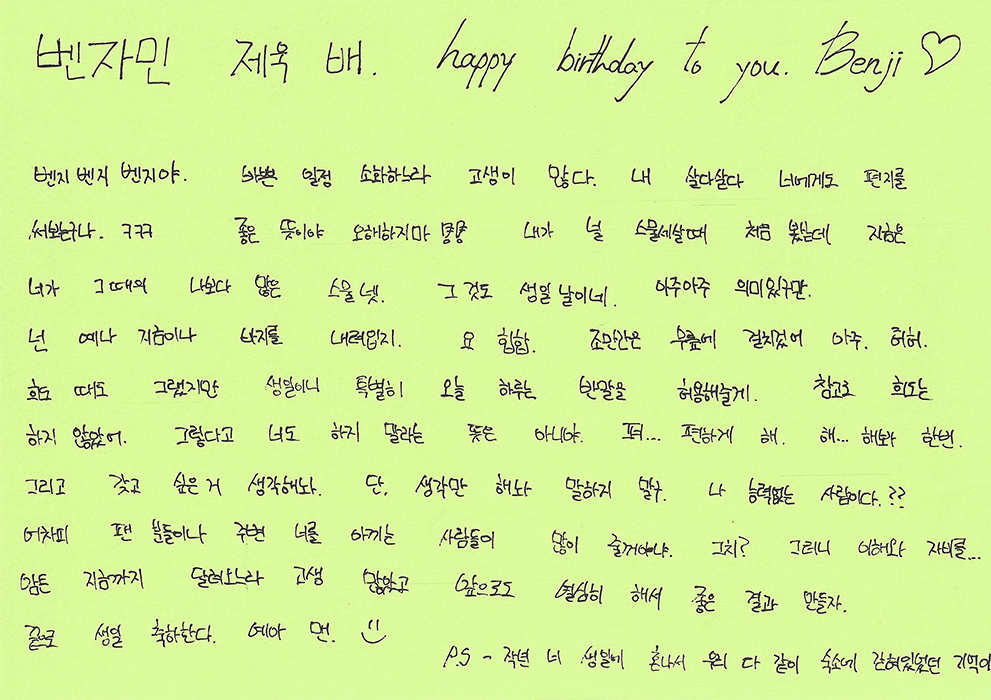 벤자민 제욱 배. happy birthday to you. Benji ♡
벤지 벤지 벤지야. 바쁜 일정 소화하느라 고생이 많다. 내 살다살다 너에게도 편지를
써보는구나. ㅋㅋㅋ 좋은 뜻이야 오해하지마 내가 널 스물세살때 처음 봤는데 지금은
너가 그때의 나보다 많은 스물넷. 그것도 생일날이네. 아주아주 의미있구만.
넌 예나 지금이나 바지를 내려입지. 요 힙합. 조만간은 무릎에 걸치겠어 아주. 허허.
희도 때도 그랬지만 생일이니 특별히 오늘 하루는 반말을 허용해줄게. 참고로 희도는
하지 않았어. 그렇다고 너도 하지 말라는 뜻은 아니야. 퍼... 편하게 해. 해... 해봐 한번.
그리고 갖고 싶은거 생각해놔. 단, 생각만 해놔 말하지 말구. 나 능력없는 사람이다.??
어차피 팬 분들이나 주변 너를 아끼는 사람들이 많이 줄거아냐. 그치? 그러니 이해와 자비를...
암튼 지금까지 달려오느라 고생 많았고 앞으로도 열심히 해서 좋은 결과 만들자.
끝으로 생일 축하한다. 예아 맨.
P.S - 작년 너 생일에 혼나서 우리 다 같이 숙소에 갇혀있었던 기억이